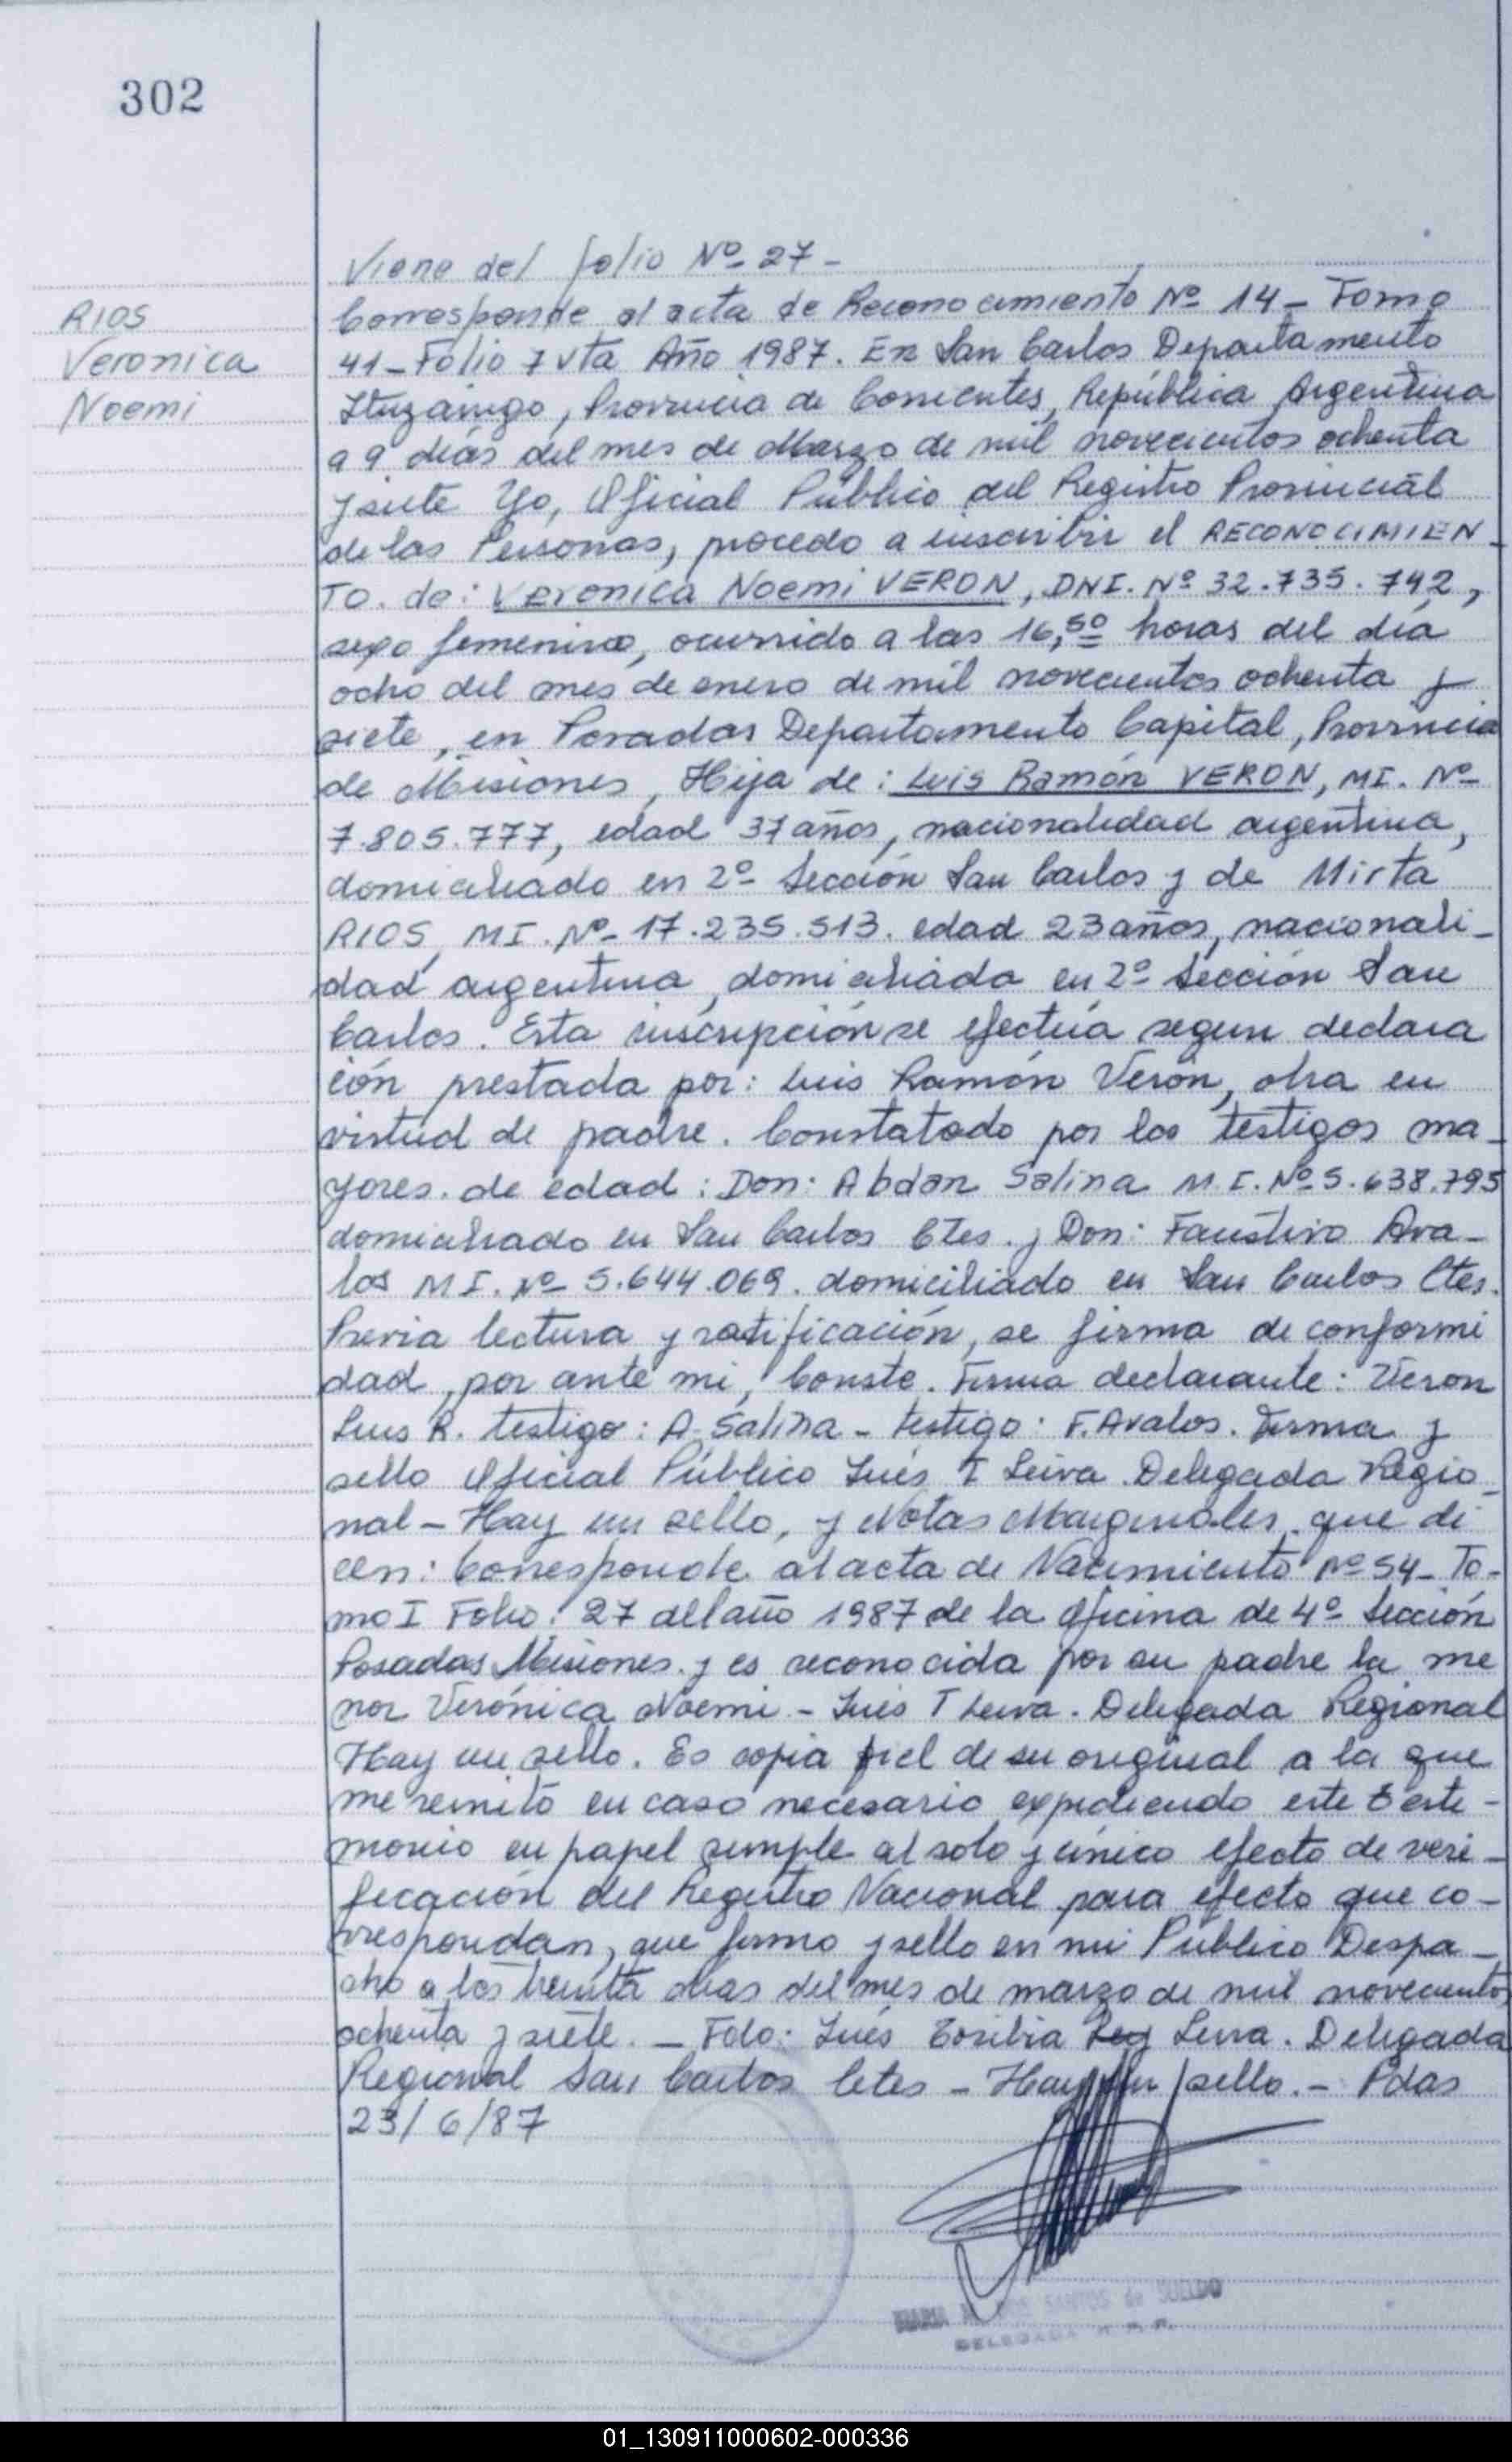 302
RIOS
Veronica
Noemi
Viene del folio Nº 27-
Corresponde al acta de Reconocimiento Nº 14- Tomo
41- Folio 7 vta Año 1987. En San Carlos Departamento
Ituzaingo, Provincia de Corrientes, República Argentina
a 9 días del mes de Marzo de mil novecientos ochenta
y siete Yo, Oficial Público del Registro Provincial
de las Personas, procedo a inscribir el RECONOCIMIEN-
TO. de: Veronica Noemi VERON, DNI. Nº 32.735.742,
sexo femenino, ocurrido a las 16,50 horas del día
ocho del mes de enero de mil novecientos ochenta y
siete, en Posadas Departamento Capital, Provincia
de Misiones, Hija de: Luis Ramón VERON, MI. Nº
7.805.777, edad 37 años, nacionalidad argentina,
domiciliado en 2º Sección San Carlos y de Mirta
RIOS, MI. Nº 17.235.513. edad 23 años, nacionali-
dad argentina, domiciliada en 2º Sección San
Carlos. Esta inscripción se efectúa segun declara
ción prestada por: Luis Ramón Veron, obra en
virtud de padre. Constatado por los testigos ma-
yores. de edad: Don: Abdon Salina M.I. Nº 5.638.795
domiciliado en San Carlos Ctes. y Don: Faustino Ava-
los M I. Nº 5.644.069. domiciliado en San Carlos Ctes.
Previa lectura y ratificación, se firma de conformi
dad, por ante mi, Conste. Firma declarante: Veron
Luis R. testigo: A. Salina - testigo: F. Avalos. Firma y
sello Oficial Público Inés T Leiva Delegada Regio-
nal - Hay un sello, y Notas Marginales, que di
cen: Corresponde al acta de Nacimiento Nº 54- To-
mo I Folio: 27 del año 1987 de la Oficina de 4º Sección
Posadas Misiones. y es reconocida por su padre la me
nor Verónica Noemi - Inés T Leiva. Delegada Regional
Hay un sello. Es copia fiel de su original a la que
me remito en caso necesario expidiendo este testi-
monio en papel simple al solo y único efecto de veri-
ficación del Registro Nacional para efecto que co-
rrespondan, que firmo y sello en mi Público Despa-
cho a los treinta días del mes de marzo de mil novecientos
ochenta y siete. - Fdo: Inés Leiva. Delegada
Regional San Carlos Ctes - Hay un sello. - Pdas
23/6/87
MARIA SANTOS de SUELDO
DELEGADA R.P.P.
01_130911000602-000336